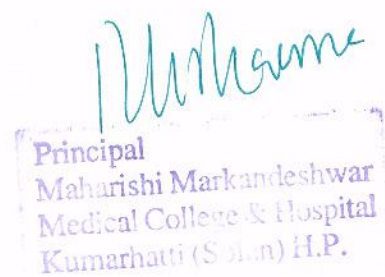 Principal
Maharishi Markandeshwar
Medical College & Hospital
Kumarhatti (Solan) H.P.